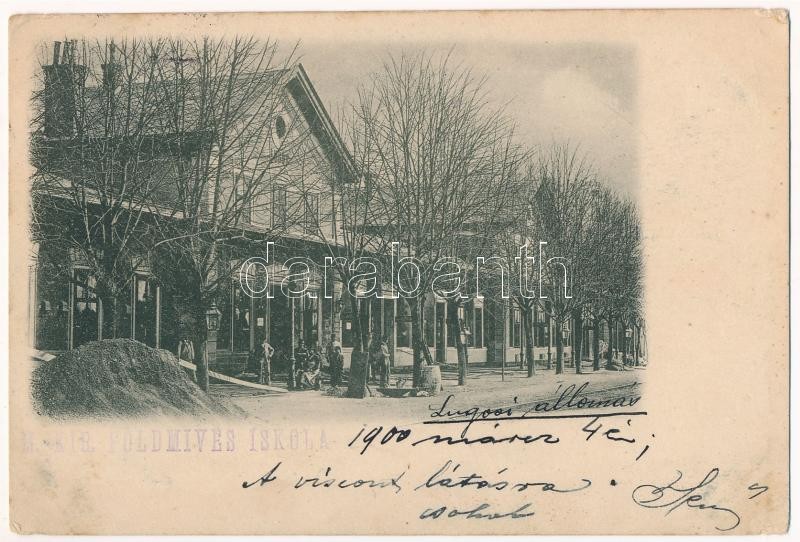 darabanth
Lugosi állomás
M. KIR. FÖLDMIVES ISKOLA
1900 márcz 4én;
A viszont látásra